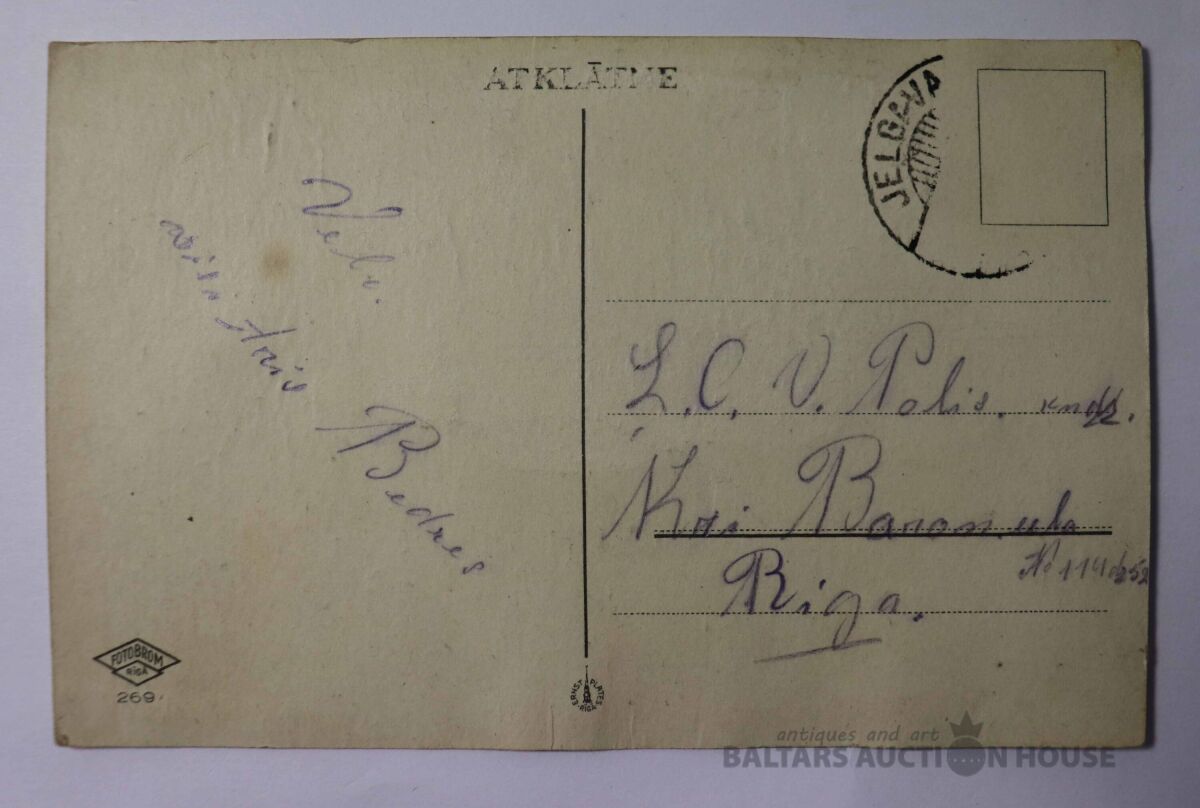 ATKLĀTNE
JELGAVA
Velv.
Bedres
L. C. V. Polis. kndz.
Kri Baron. iela
No 114 dz 52
Riga.
FOTOBROM
RĪGĀ
269
ERNST PLATES
RĪGĀ
antiques and art
BALTARS AUCTION HOUSE